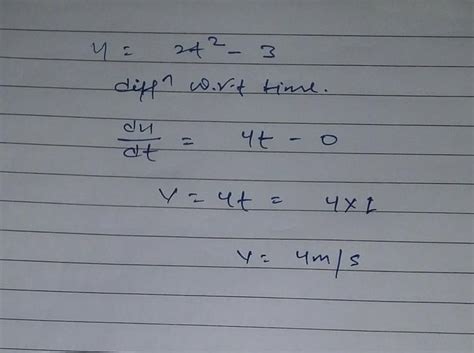 u = 2t² - 3
diffⁿ w.r.t time.
du/dt = 4t - 0
V = 4t = 4×1
V = 4m/s